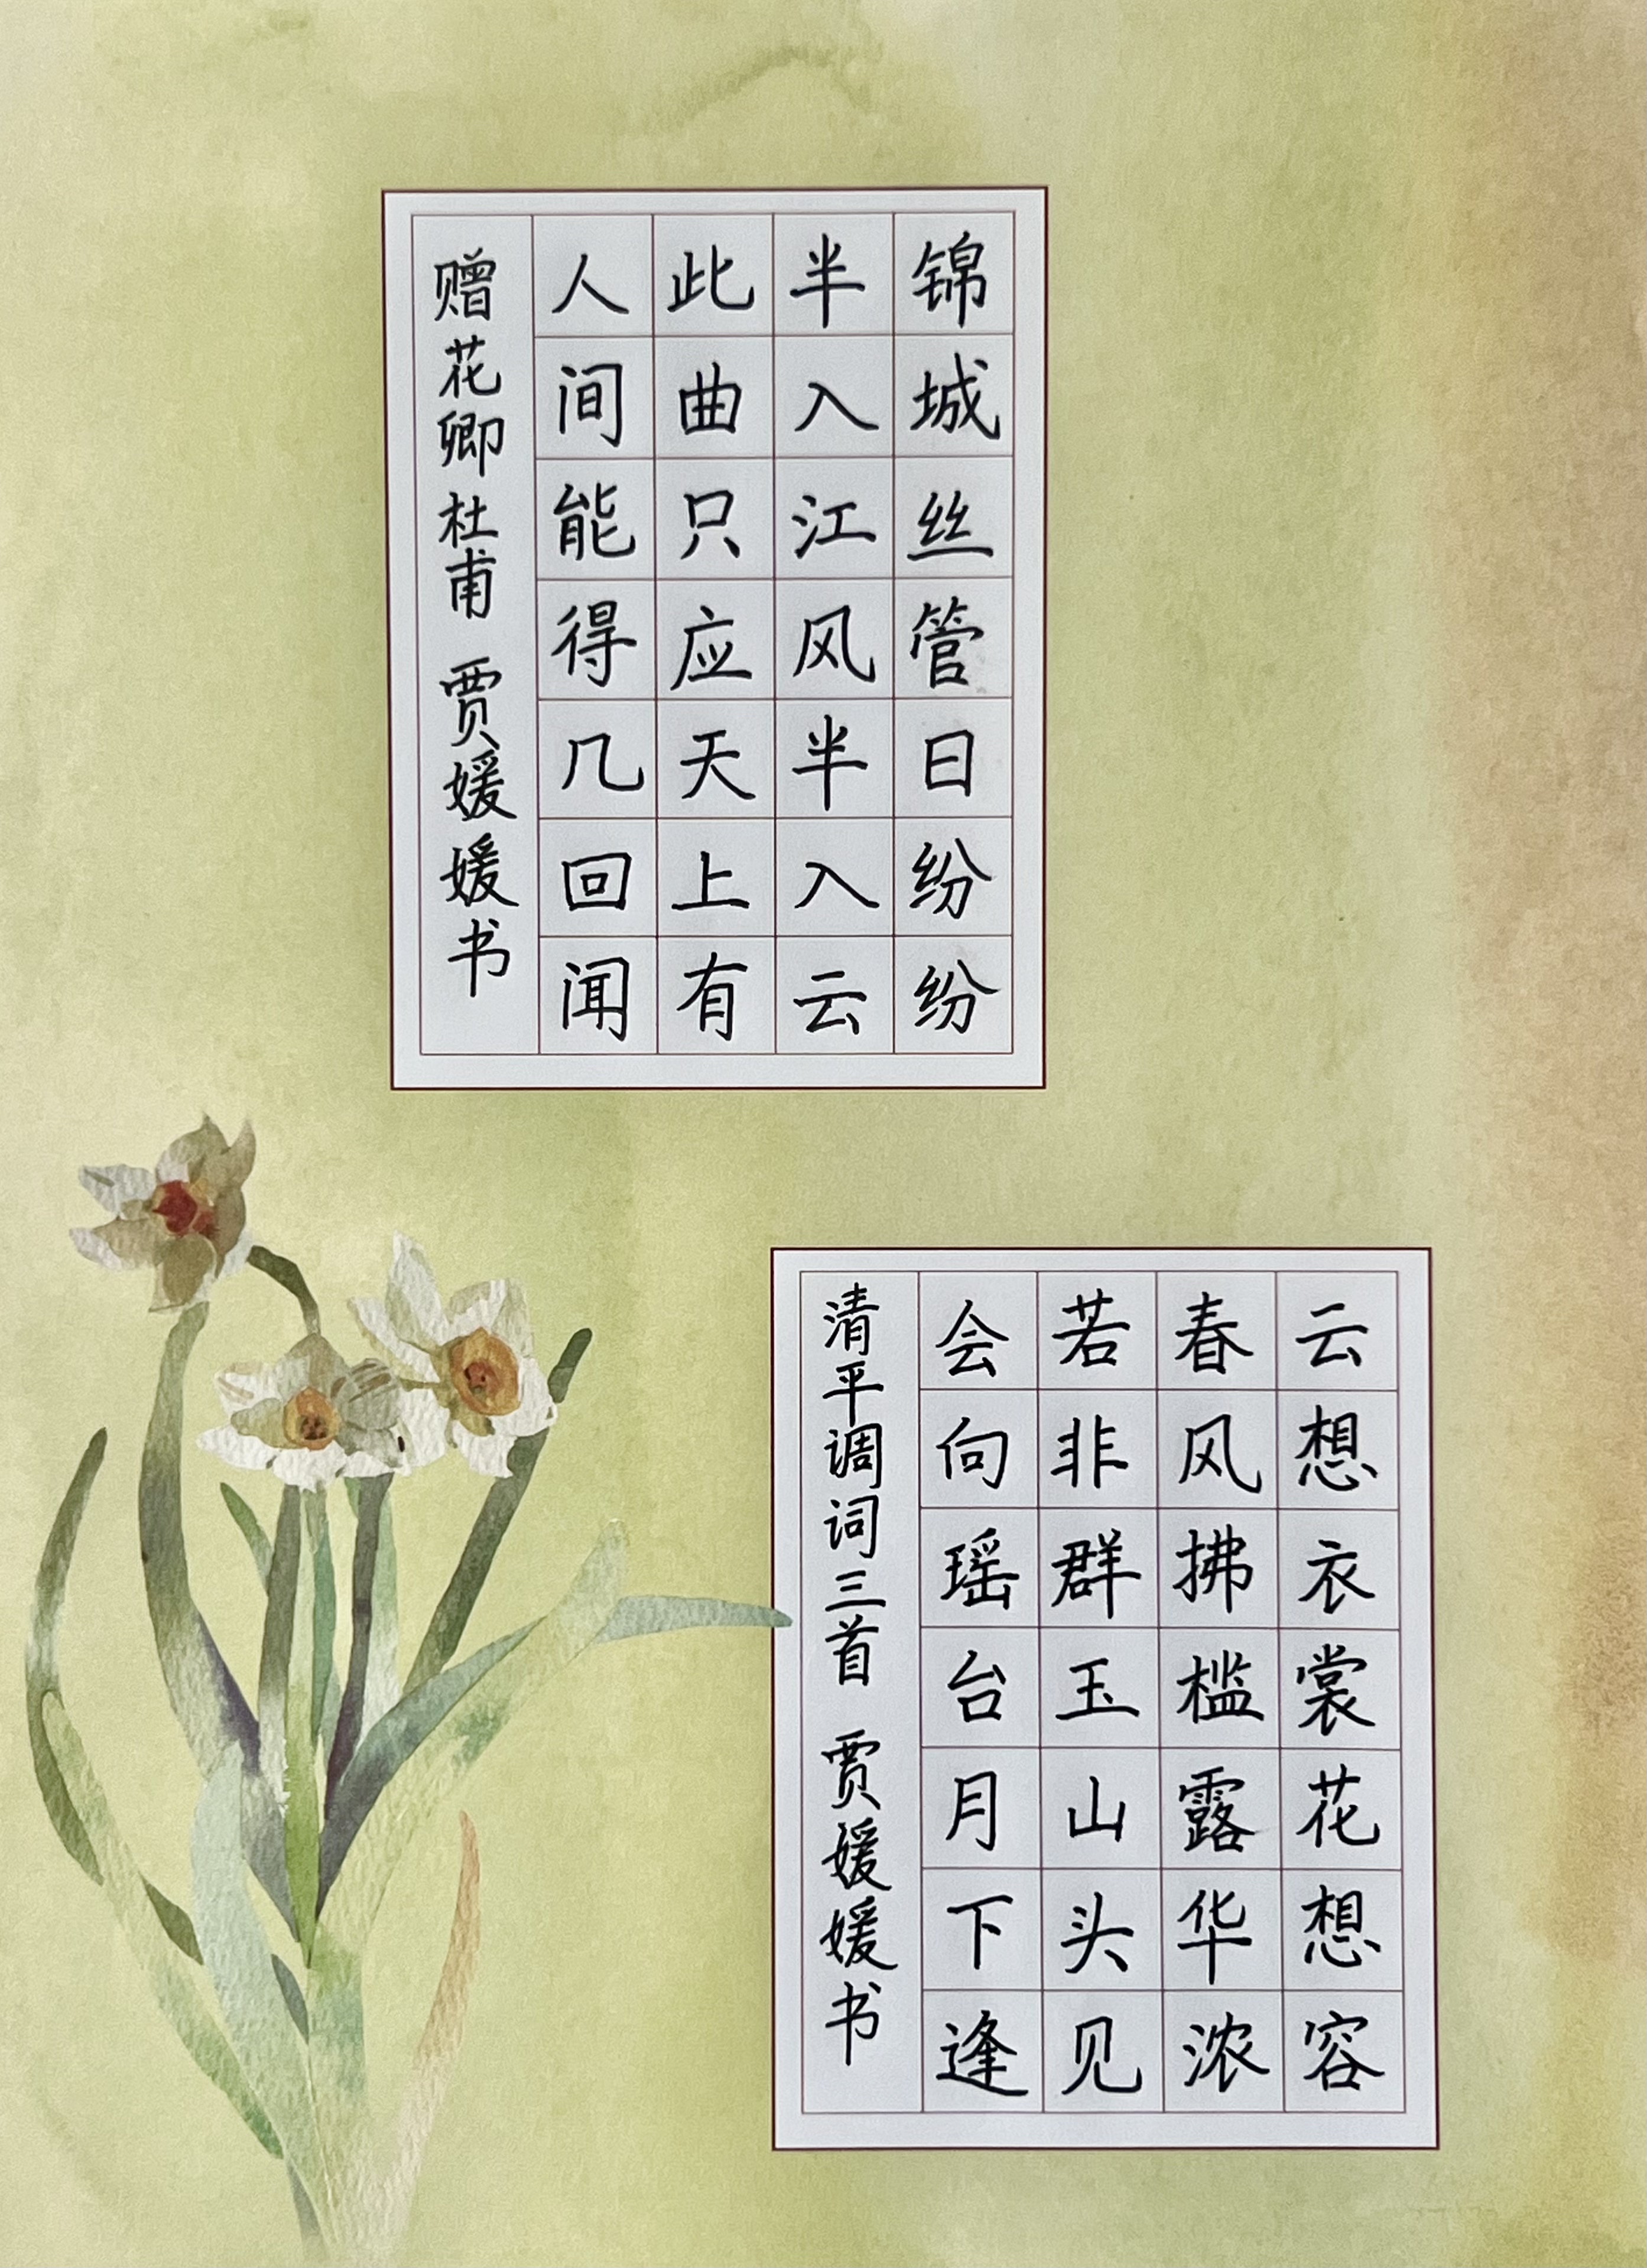 锦城丝管日纷纷
半入江风半入云
此曲只应天上有
人间能得几回闻
赠花卿杜甫 贾媛媛书
云想衣裳花想容
春风拂槛露华浓
若非群玉山头见
会向瑶台月下逢
清平调词三首 贾媛媛书